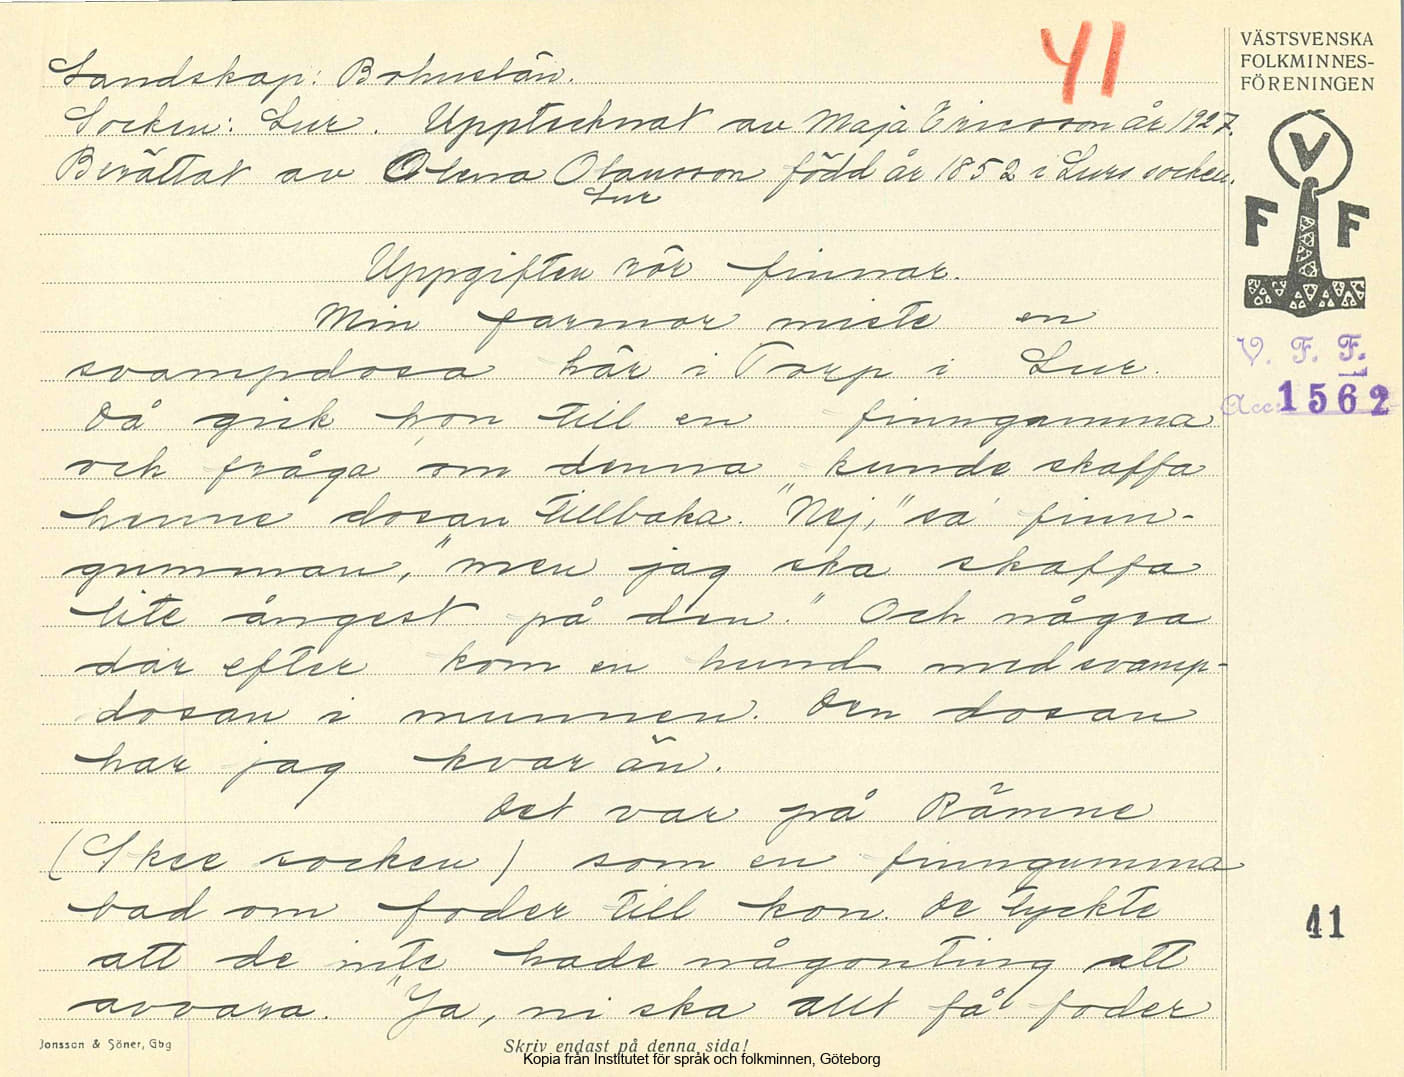 41
VÄSTSVENSKA
FOLKMINNES-
FÖRENINGEN
Landskap: Bohuslän.
Socken: Lur. Upptecknat av Maja Ericsson år 1927.
Berättat av Olena Olausson född år 1852 i Lurs socken.
Lur
V
F F
Uppgiften rör finnar.
Min farmor miste en
svampdosa här i Torp i Lur.
V. F. F.
Acc: 1562
Då gick hon till en finngumma
och fråga om denna kunde skaffa
henne dosan tillbaka. "Nej," sa finn-
gumman, "men jag ska skaffa
lite ångest på den." Och några
dar efter kom en hund med svamp-
dosan i munnen. Den dosan
har jag kvar än.
Det var på Rämne
(Skee socken) som en finngumma
bad om foder till kon. De tyckte
41
att de inte hade någonting att
avvara. "Ja, ni ska allt få foder
Jonsson & Söner, Gbg
Skriv endast på denna sida!
Kopia från Institutet för språk och folkminnen, Göteborg